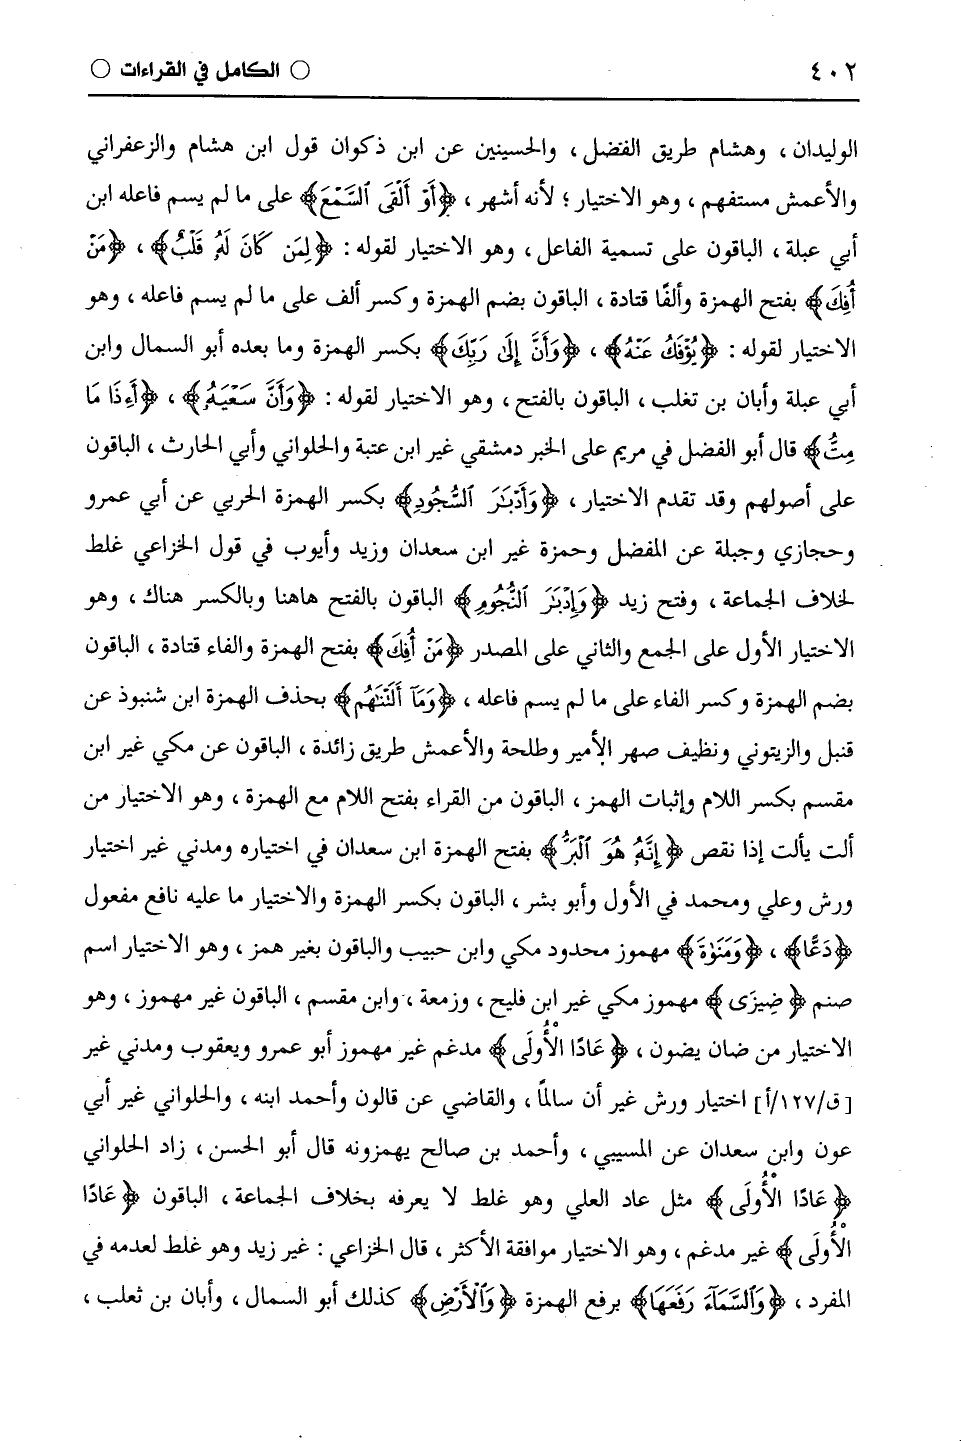 ٤٠٢ ○ الكامل في القراءات ○
الوليدان ، وهشام طريق الفضل ، والحسينين عن ابن ذكوان قول ابن هشام والزعفراني
والأعمش مستفهم ، وهو الاختيار ؛ لأنه أشهر ، ﴿أَوْ أَلْقَى ٱلسَّمْعَ﴾ على ما لم يسم فاعله ابن
أبي عبلة ، الباقون على تسمية الفاعل ، وهو الاختيار لقوله : ﴿لِمَن كَانَ لَهُۥ قَلْبٌ﴾ ، ﴿مَنْ
أُفِكَ﴾ بفتح الهمزة وألفًا قتادة ، الباقون بضم الهمزة وكسر ألف على ما لم يسم فاعله ، وهو
الاختيار لقوله : ﴿يُؤْفَكُ عَنْهُ﴾ ، ﴿وَأَنَّ إِلَىٰ رَبِّكَ﴾ بكسر الهمزة وما بعده أبو السمال وابن
أبي عبلة وأبان بن تغلب ، الباقون بالفتح ، وهو الاختيار لقوله : ﴿وَأَنَّ سَعْيَهُۥ﴾ ، ﴿أَءِذَا مَا
مِتُّ﴾ قال أبو الفضل في مريم على الخبر دمشقي غير ابن عتبة والحلواني وأبي الحارث ، الباقون
على أصولهم وقد تقدم الاختيار ، ﴿وَأَدْبَٰرَ ٱلسُّجُودِ﴾ بكسر الهمزة الحربي عن أبي عمرو
وحجازي وجبلة عن المفضل وحمزة غير ابن سعدان وزيد وأيوب في قول الخزاعي غلط
لخلاف الجماعة ، وفتح زيد ﴿وَإِدْبَٰرَ ٱلنُّجُومِ﴾ الباقون بالفتح هاهنا وبالكسر هناك ، وهو
الاختيار الأول على الجمع والثاني على المصدر ﴿مَنْ أُفِكَ﴾ بفتح الهمزة والفاء قتادة ، الباقون
بضم الهمزة وكسر الفاء على ما لم يسم فاعله ، ﴿وَمَآ أَلَتْنَٰهُم﴾ بحذف الهمزة ابن شنبوذ عن
قنبل والزيتوني ونظيف صهر الأمير وطلحة والأعمش طريق زائدة ، الباقون عن مكي غير ابن
مقسم بكسر اللام وإثبات الهمز ، الباقون من القراء بفتح اللام مع الهمزة ، وهو الاختيار من
ألت يألت إذا نقص ﴿إِنَّهُۥ هُوَ ٱلْبَرُّ﴾ بفتح الهمزة ابن سعدان في اختياره ومدني غير اختيار
ورش وعلي ومحمد في الأول وأبو بشر ، الباقون بكسر الهمزة والاختيار ما عليه نافع مفعول
﴿دَعًّا﴾ ، ﴿وَمَنَوٰةَ﴾ مهموز محدود مكي وابن حبيب والباقون بغير همز ، وهو الاختيار اسم
صنم ﴿ضِيزَى﴾ مهموز مكي غير ابن فليح ، وزمعة ، وابن مقسم ، الباقون غير مهموز ، وهو
الاختيار من ضان يضون ، ﴿عَادًا الْأُولَى﴾ مدغم غير مهموز أبو عمرو ويعقوب ومدني غير
[ق/١٢٧/أ] اختيار ورش غير أن سالمًا ، والقاضي عن قالون وأحمد ابنه ، والحلواني غير أبي
عون وابن سعدان عن المسيبي ، وأحمد بن صالح يهمزونه قال أبو الحسن ، زاد الحلواني
﴿عَادًا الْأُولَى﴾ مثل عاد العلي وهو غلط لا يعرفه بخلاف الجماعة ، الباقون ﴿عَادًا
الْأُولَى﴾ غير مدغم ، وهو الاختيار موافقة الأكثر ، قال الخزاعي : غير زيد وهو غلط لعدمه في
المفرد ، ﴿وَٱلسَّمَآءَ رَفَعَهَا﴾ برفع الهمزة ﴿وَٱلْأَرْضَ﴾ كذلك أبو السمال ، وأبان بن ثعلب ،